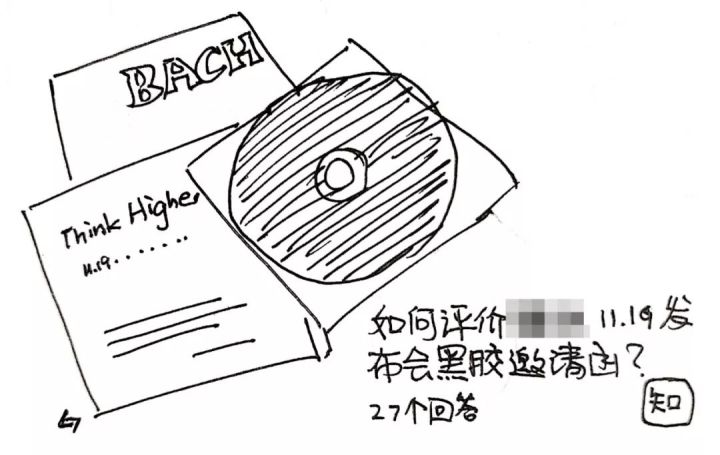 BACH
Think Higher
11.19.......
如何评价 11.19发
布会黑胶邀请函?
27个回答
知